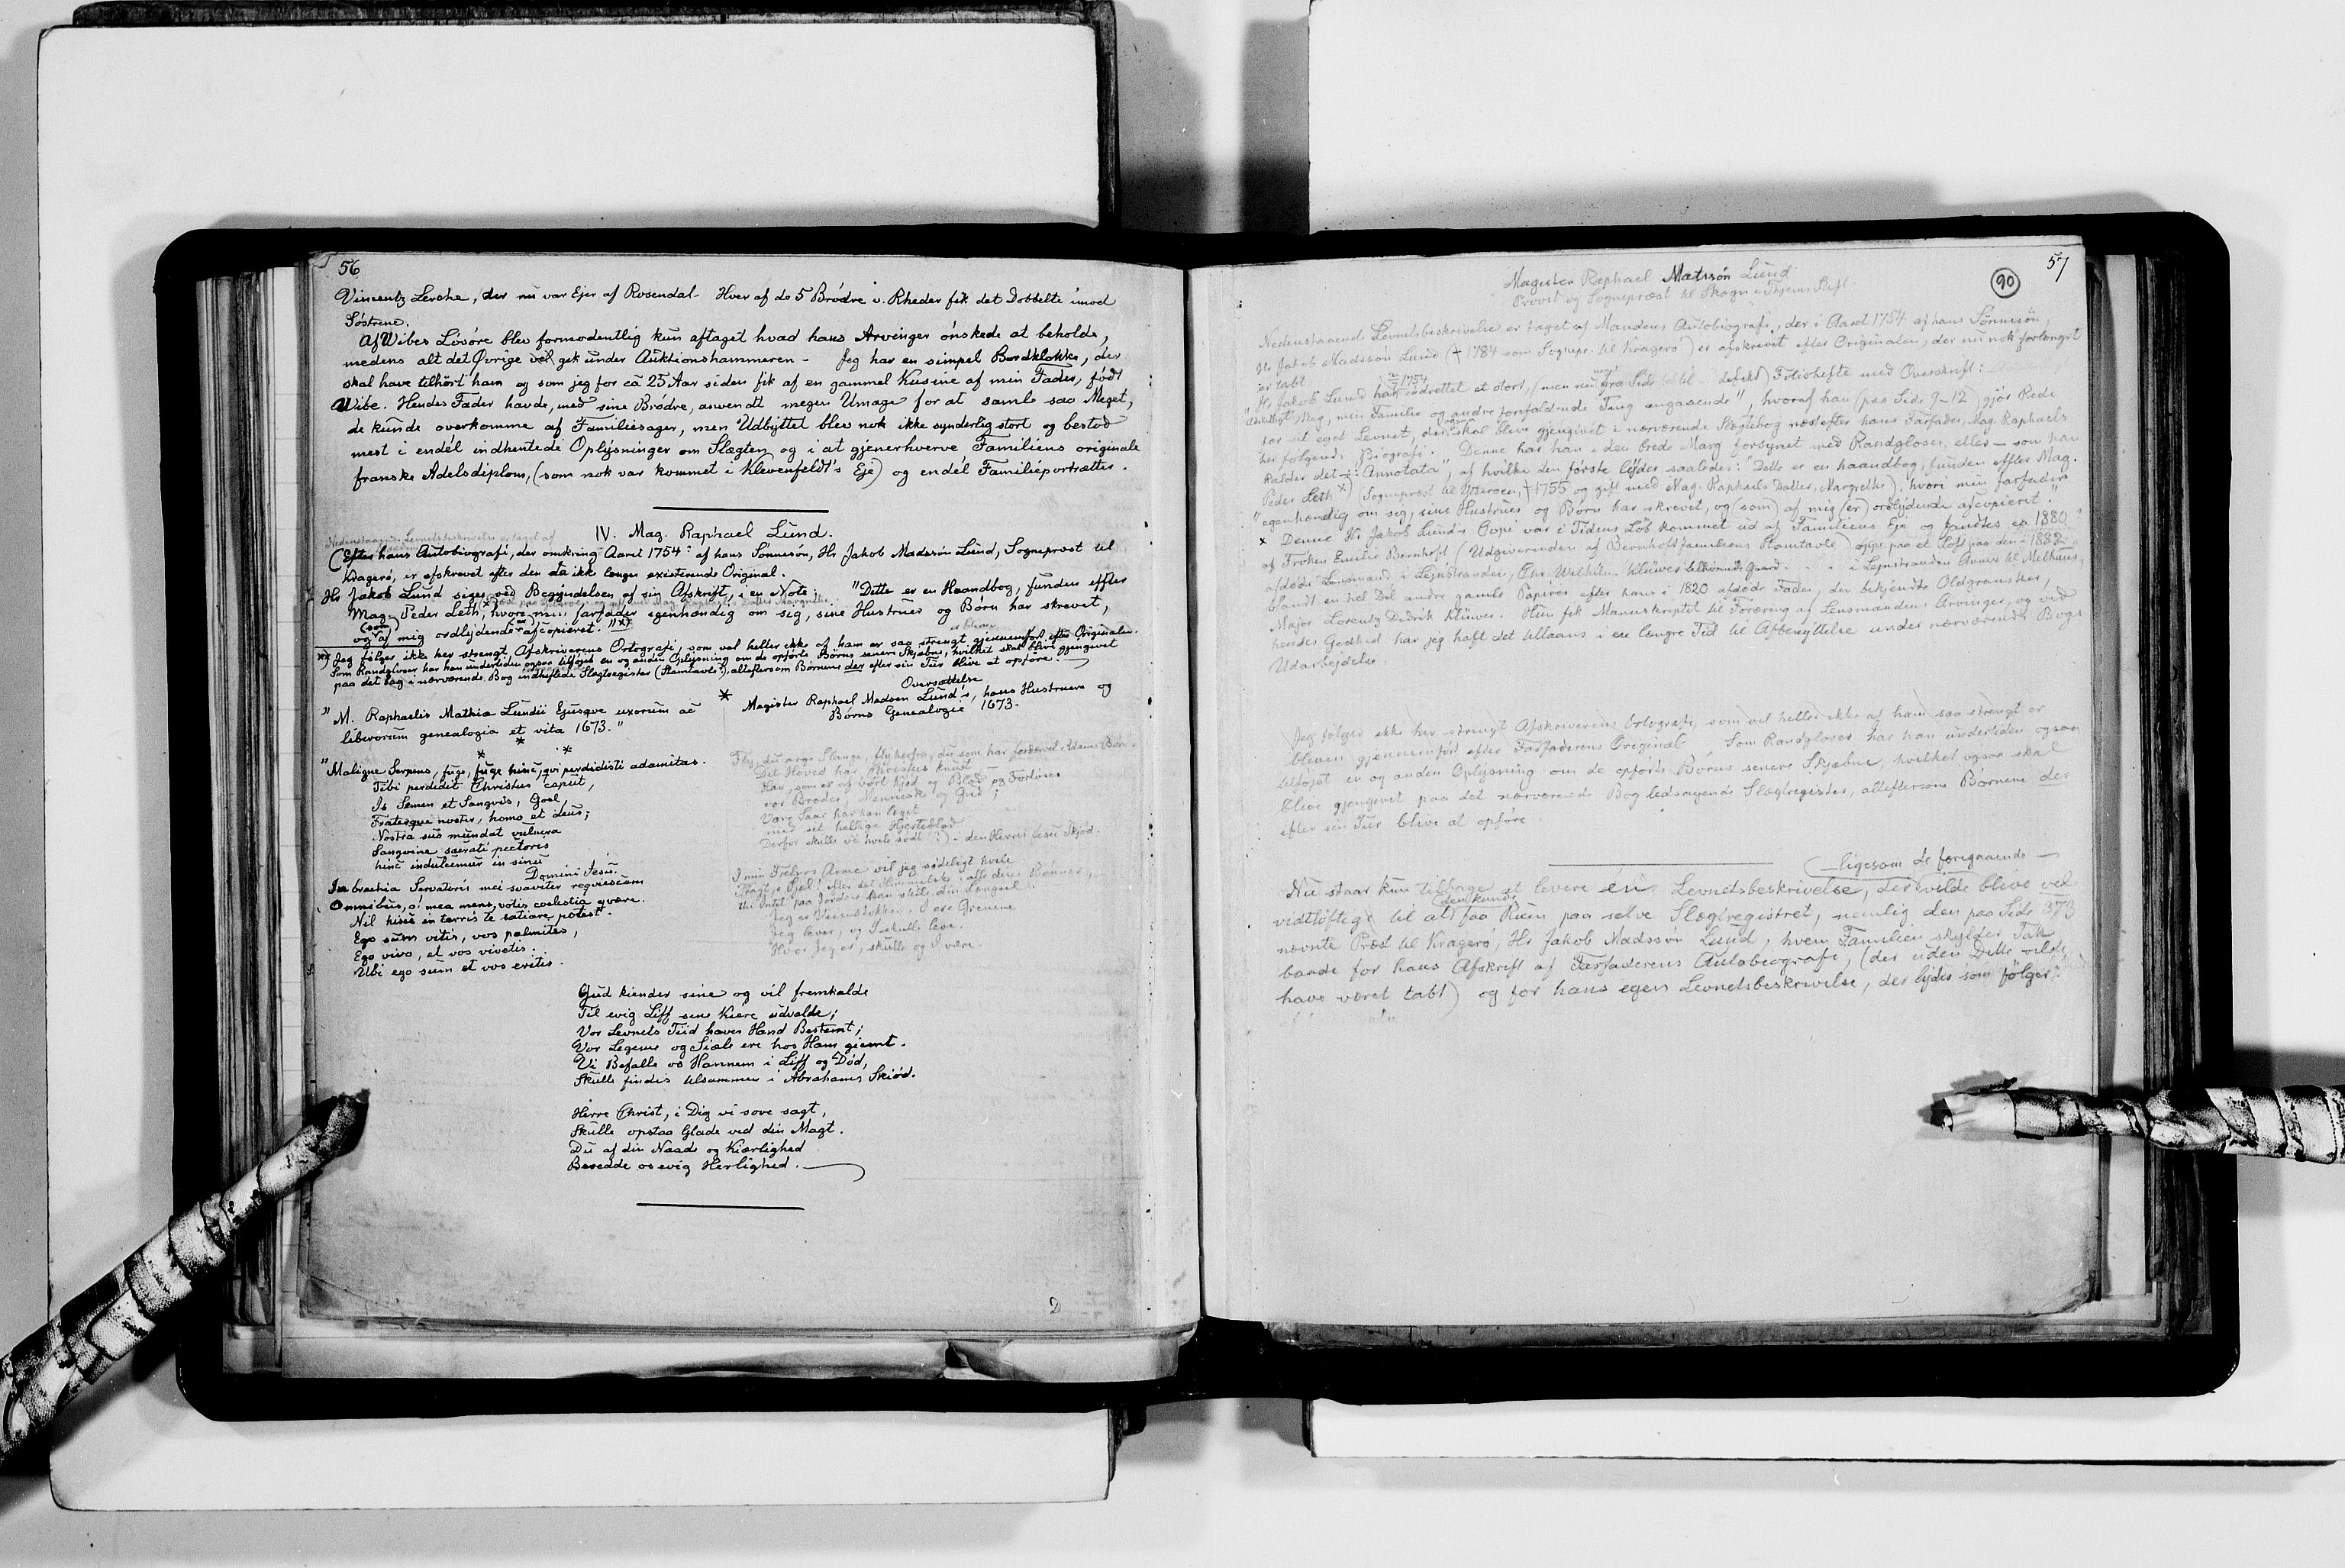 56
Vincentz Lerche, der nu var Ejer af Rosendal. Hver af de 5 Brødre v. Rheder fik det Dobbelte imod
Søstrene.
Af Wibes Løsøre blev formodentlig kun aftaget hvad hans Arvinger ønskede at beholde,
medens alt det Øvrige vel gik under Auktionshammeren - Jeg har en simpel Bordklokke, der
skal have tilhørt ham og som jeg for ca 25 Aar siden fik af en gammel Kusine af min Fader, født
Wibe. Hendes Fader havde, med sine Brødre, anvendt megen Umage for at samle saa Meget,
de kunde overkomme af Familiesager, men Udbyttet blev nok ikke synderlig stort og bestod
mest i endel indhentede Oplysninger om Slægten og i at gjenerhverve Familiens originale
franske Adelsdiplom, (som nok var kommet i Klevenfeldt's Eje) og endel Familieportrætter.
IV. Mag. Raphael Lund.
Nedenstaaende Levnetsbeskrivelse er taget af
(Efter hans Autobiografi, der omkring Aaret 1754 af hans Sønnesøn, Hr Jakob Madssøn Lund, Sogneprest til
Kragerø, er afskrevet efter den da ikk længer existerende Original.
Hr Jakob Lund siger ved Begyndelsen af sin Afskrift, i en Note: "Dette er en Haandbog, funden effter
Mag. Peder Leth, hvori min farfader egenhændig om sig, sine Hustruer og Børn har skrevet,
og (som) af mig ordlydende (er) afcopieret." xx)
xx) Jeg følger ikke her strengt Afskriverens Ortografi, som vel heller ikke af ham er saa strengt gjennemført efter Originalen.
Som Randgloser har han undertiden ogsaa tilføjet en og anden Oplysning om de opførte Børns senere Skjæbne, hvilket skal blive gjengivet
paa det bag i nærværende Bog indheftede Slægtregister (Stamtavle), alteftersom Børnene der efter sin Tur blive at opføre.
Oversættelse
"M. Raphaelis Mathiæ Lundii Ejusqve uxorum ac
liberorum genealogia et vita 1673."
* Magister Raphael Madsen Lund's, hans Hustruers og
Børns Genealogie 1673.
* * *
"Maligne Serpens, fuge, fuge hinc, qvi perdidisti adamitas.
Tibi perdidit Christus caput,
Is Semen et Sangvis, Goel,
Fraterque noster, homo et deus;
Nostra suo mundat vulnera
Sangvine sacrati pectoris
hinc indulcemur in sinu
Domini Jesu.
In brachia Servatoris mei svaviter reqviescam
Omnibus, o! mea mens, votis coelestia qvære.
Nil hisce in terris te satiare potest.
Ego sum vitis, vos palmites,
Ego vivo, et vos vivetis.
Ubi ego sum et vos eritis.
Det Hoved har Christus knust
Han, som er og vort Kjød og Blod og Forløser
vor Broder, Menneske og Gud;
Vore Saar har han læget
med sit hellige Hjerteblod
Derfor skulle vi hvile sødt (?) i den Herres Jesu Skjød.
I min Frelsers Arme vil jeg sødeligt hvile
thi Intet paa Jorden kan stille din Længsel.
Jeg er Vinstokken, I ere Grenene
Jeg lever, og I skulle leve.
Hvor Jeg er, skulle og I være.
Gud kiender sine og vil fremkalde
Til evig Liff sine Kiere udvalde;
Vor Levnets Tiid haver Hand Bestemt;
Vor Legeme og Siæle ere hos Ham giemt.
Vi Befalle os Hannem i Liff og Død,
Skulle findis tilsammen i Abrahams Skiød.
Herre Christ, i Dig vi sove sagt,
Skulle opstaa Glade ved din Magt.
Du af din Naade og Kiærlighed
Beredde os evig Herlighed.
D
57
90
Magister Raphael Matssøn Lund
Provst og Sogneprest til Skogn i Thjems Stift.
Nedenstaaende Levnetsbeskrivelse er taget af Mandens Autobiografi, der i Aaret 1754 af hans Sønnesøn,
Hr Jakob Madssøn Lund († 1784 som Sognepr. til Kragerø) er afskrevet efter Originalen, der nu nok forlængst
er tabt
Hr Jakob Lund har indrettet et stort, men nu defekt) Foliohefte med Overskrift:
Mig, min Familie og andre forefaldende Ting angaaende", hvoraf han (paa Side 9-12) gjør Rede
for sit eget Levnet, der skal blive gjengivet i nærværende Slægtebog næst efter hans Farfader, Mag. Raphaels
her følgende Biografi. Denne har han i den brede Marg forsynet med Randgloser, eller - som han
kalder det -: "Annotata", af hvilke den første lyder saaledes: "Dette er en haandbog, funden effter Mag.
Peder Leth x) (Sogneprest til Ytterøen, † 1755 og gift med Mag. Raphaels Datter, Margrethe), hvori min farfader
"egenhændig om sig, sine Hustruer og Børn har skrevet, og (som) af mig (er) ordlydende afcopieret."
x Denne Hr Jakob Lunds Copi var i Tidens Løb kommet ud af Familiens Eje og fandtes ca 1880
af Frøken Emilie Bernhoft (Udgiverinden af Bernhoftfamiliens Stamtavle) oppe paa et Loft paa den i 1882
afdøde Lensmand i Lejnstranden, Chr. Wilhelm Klüwers tilhørende Gaard i Lejnstranden Annex til Melhuus,
blandt en hel Del andre gamle Papirer efter hans i 1820 afdøde Fader, den bekjendte Oldgransker,
Major Lorentz Didrik Klüwer. Hun fik Manuskriptet til Foræring af Lensmandens Arvinger, og ved
hendes Godhed har jeg haft det tillaans i en længre Tid til Afbenyttelse under nærværende Bogs
Udarbejdelse.
Jeg følger ikke her strengt Afskriverens Ortografi, som vel heller ikke af ham saa strengt er
bleven gjennemført efter Farfaderens Original. Som Randgloser har han undertiden ogsaa
tilføjet en og anden Oplysning om de opførte Børns senere Skjæbne, hvilket ogsaa skal
blive gjengivet paa det nærværende Bog ledsagende Slægtregister, alteftersom Børnene der
efter sin Tur blive at opføre.
ligesom de foregaaende
Nu staar kun tilbage at levere én Levnetsbeskrivelse, der vilde blive vel
vidtløftig til at (den kunde) faa Rum paa selve Slægtregistret, nemlig den paa Side 373
nævnte Præst til Kragerø, Hr Jakob Madssøn Lund, hvem Familien skylder Tak
baade for hans Afskrift af Farfaderens Autobiografi, (der uden Dette vilde
have været tabt) og for hans egen Levnetsbeskrivelse, der lyder som følger: